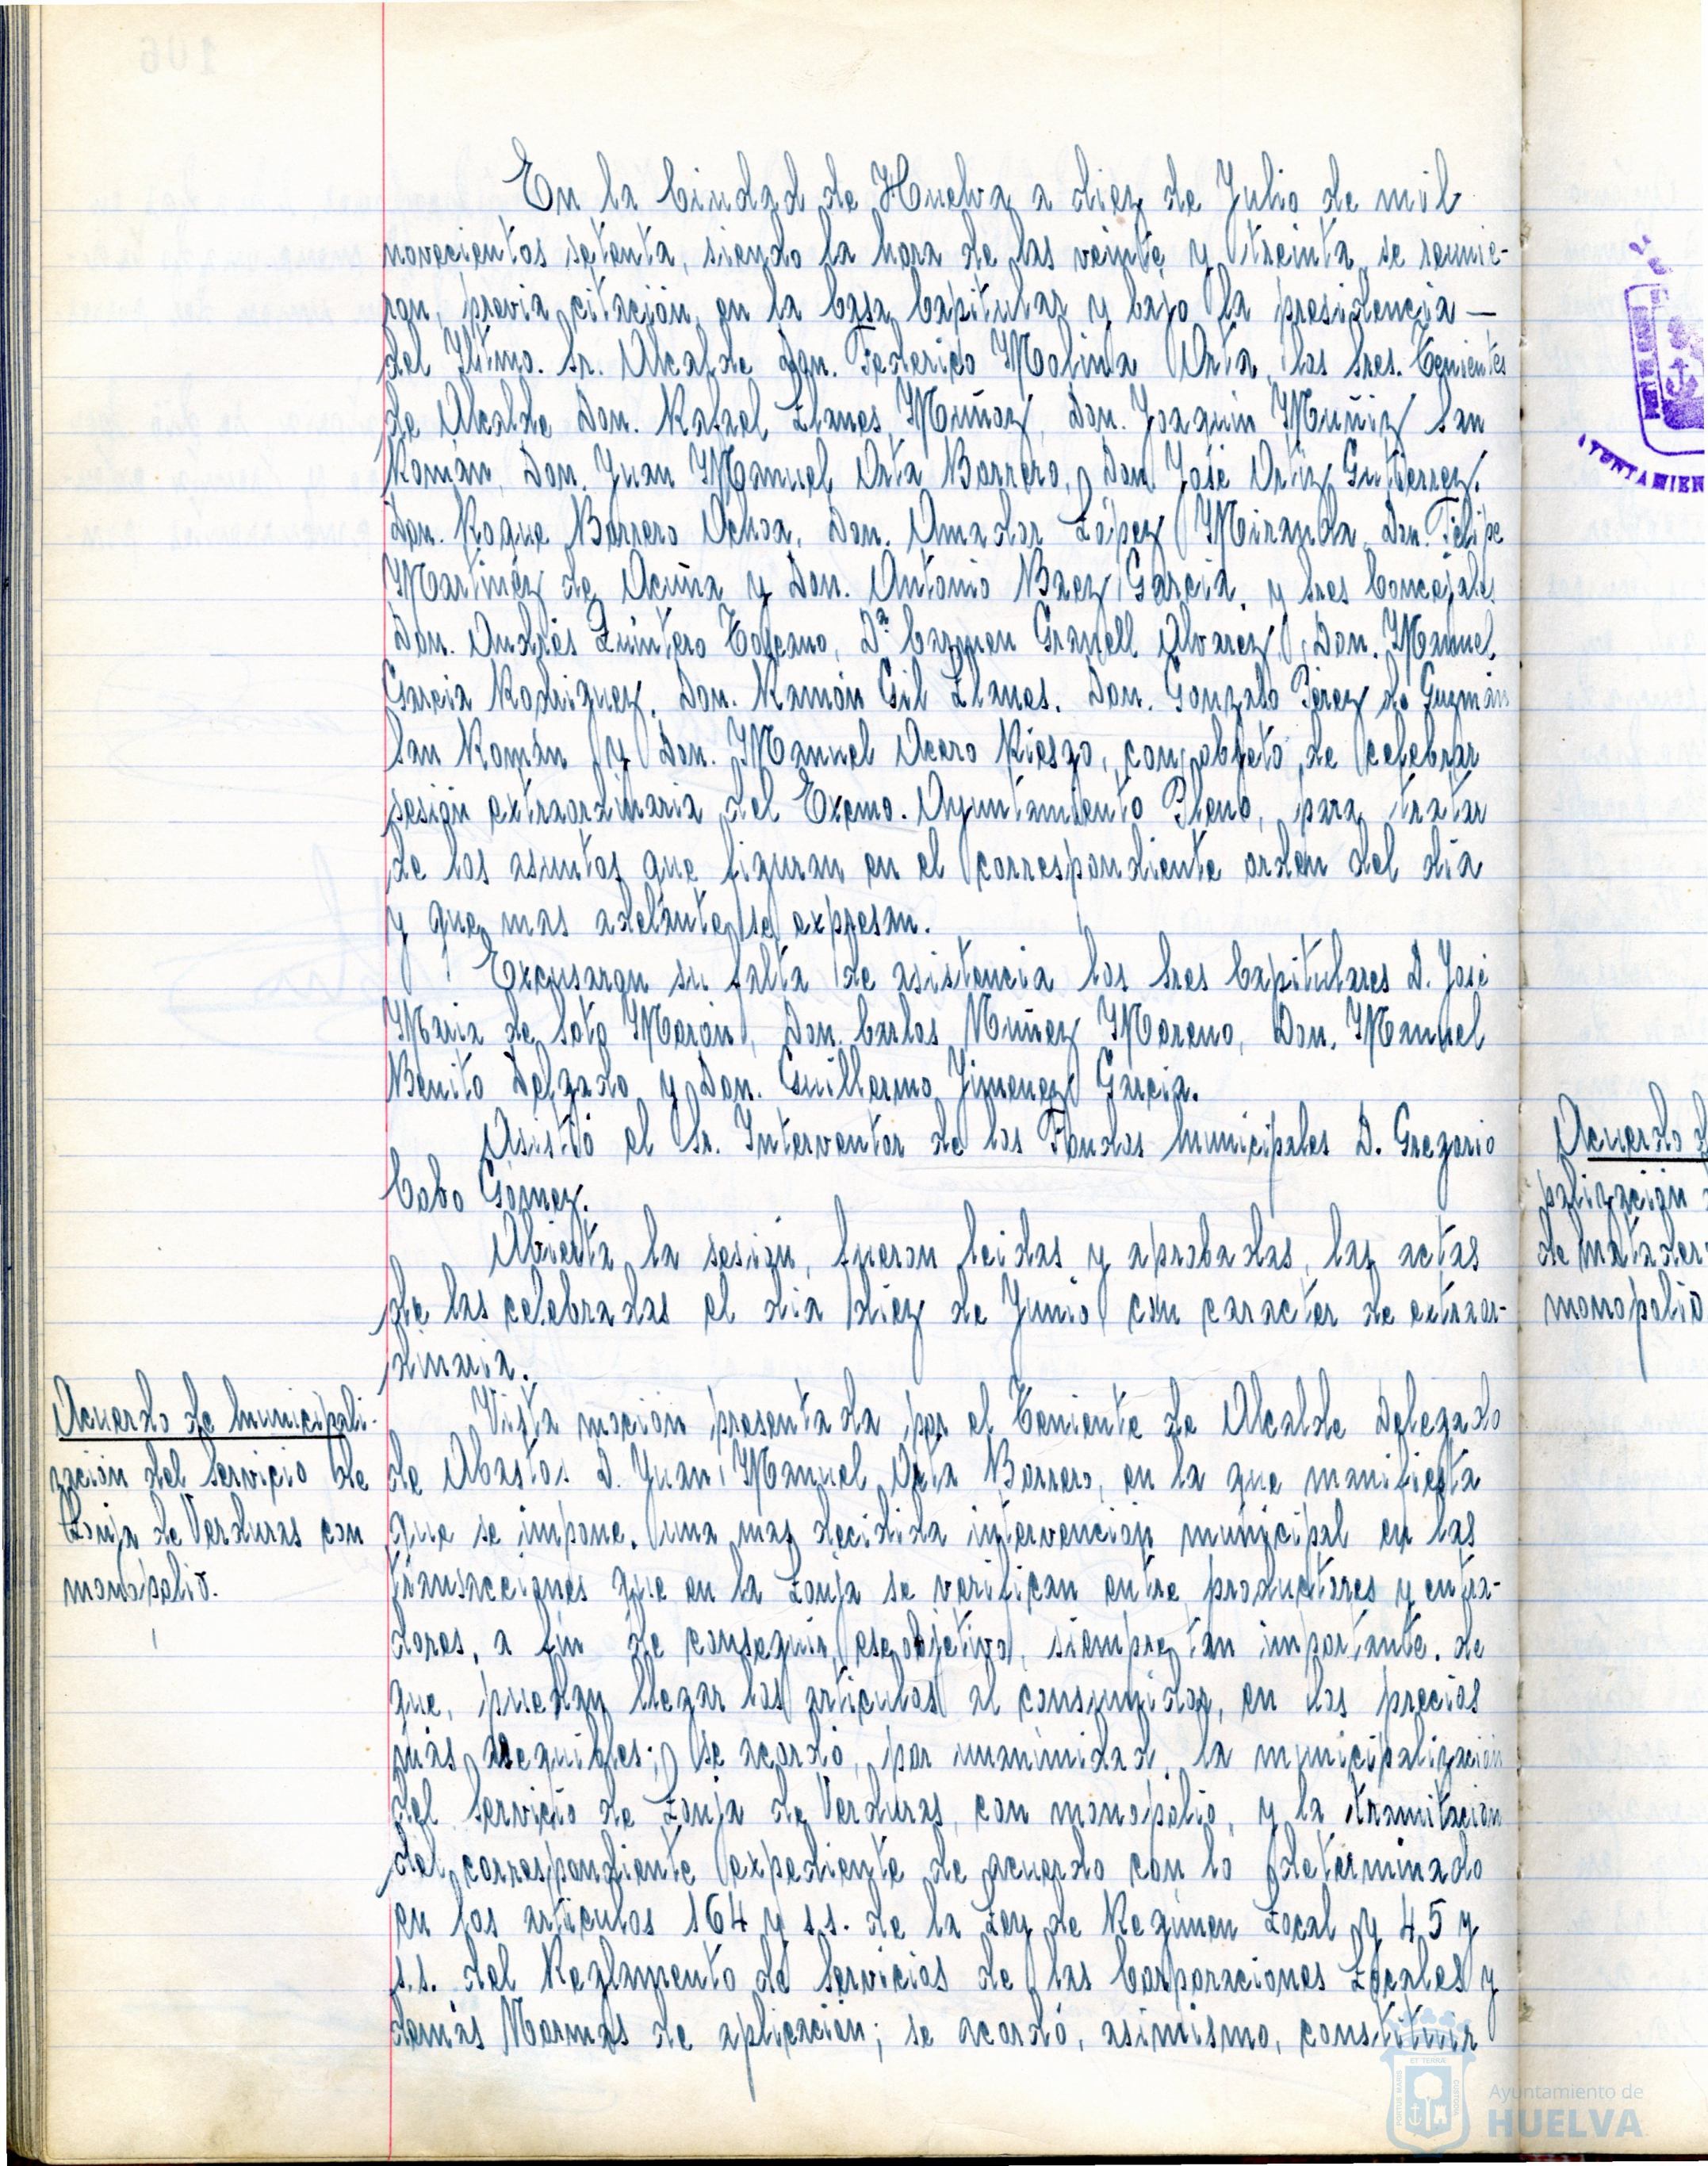 En la Ciudad de Huelva a diez de Julio de mil
novecientos setenta, siendo la hora de las veinte y treinta, se reunie-
ron, previa citación, en la Casa Capitular y bajo la presidencia —
del Iltmo. Sr. Alcalde Don. Federico Molina Orta, los Sres. Tenientes
de Alcalde Don. Rafael Llanes Muñoz, Don. Joaquin Muñiz San
Román, Don. Juan Manuel Orta Borrero, Don José Ortiz Gutierrez.
Don. Roque Barrero Ochoa, Don. Amador López Miranda, Don. Felipe
Martinez de Acuña y Don. Antonio Baez Garcia, y Sres Concejales
Don. Andrés Quintero Toscano, Dª Carmen Granell Alvarez, Don. Manuel
Garcia Rodriguez, Don. Ramón Gil Llanes. Don. Gonzalo Pérez de Guzmán
San Román y Don. Manuel Acero Riesgo, con objeto de celebrar
sesión extraordinaria del Excmo. Ayuntamiento Pleno, para tratar
de los asuntos que figuran en el correspondiente orden del dia
y que mas adelante se expresan.
Excusaron su falta de asistencia los Sres Capitulares D. José
Maria de Soto Morón, Don. Carlos Nuñez Moreno, Don. Manuel
Benito Delgado y Don. Guillermo Jimenez Garcia.
Asistió el Sr. Interventor de los Fondos Municipales D. Gregorio
Cabo Gómez.
Abierta la sesión, fueron leidas y aprobadas, las actas
de las celebradas el dia diez de Junio con caracter de extraor-
dinaria.
Acuerdo de Municipali-
zación del Servicio de
Lonja de Verduras con
monopolio.
Vista moción presentada por el Teniente de Alcalde Delegado
de Abastos D. Juan Manuel Orta Borrero, en la que manifiesta
que se impone, una mas decidida intervención municipal en las
transacciones que en la Lonja se verifican entre productores y entra-
dores, a fin de conseguir ese objetivo, siempre tan importante. de
que, puedan llegar los articulos al consumidor, en los precios
más asequibles; se acordó, por unanimidad, la municipalización
del Servicio de Lonja de Verduras, con monopolio, y la tramitación
del correspondiente expediente de acuerdo con lo determinado
en los articulos 164 y s.s. de la Ley de Regimen Local y 45 y
s.s. del Reglamento de Servicios de las Corporaciones Locales y
demás Normas de aplicación; se acordó, asimismo, constituir
Acuerdo d
palización
de matader
monopolio
AYUNTAMIEN
Ayuntamiento de
HUELVA